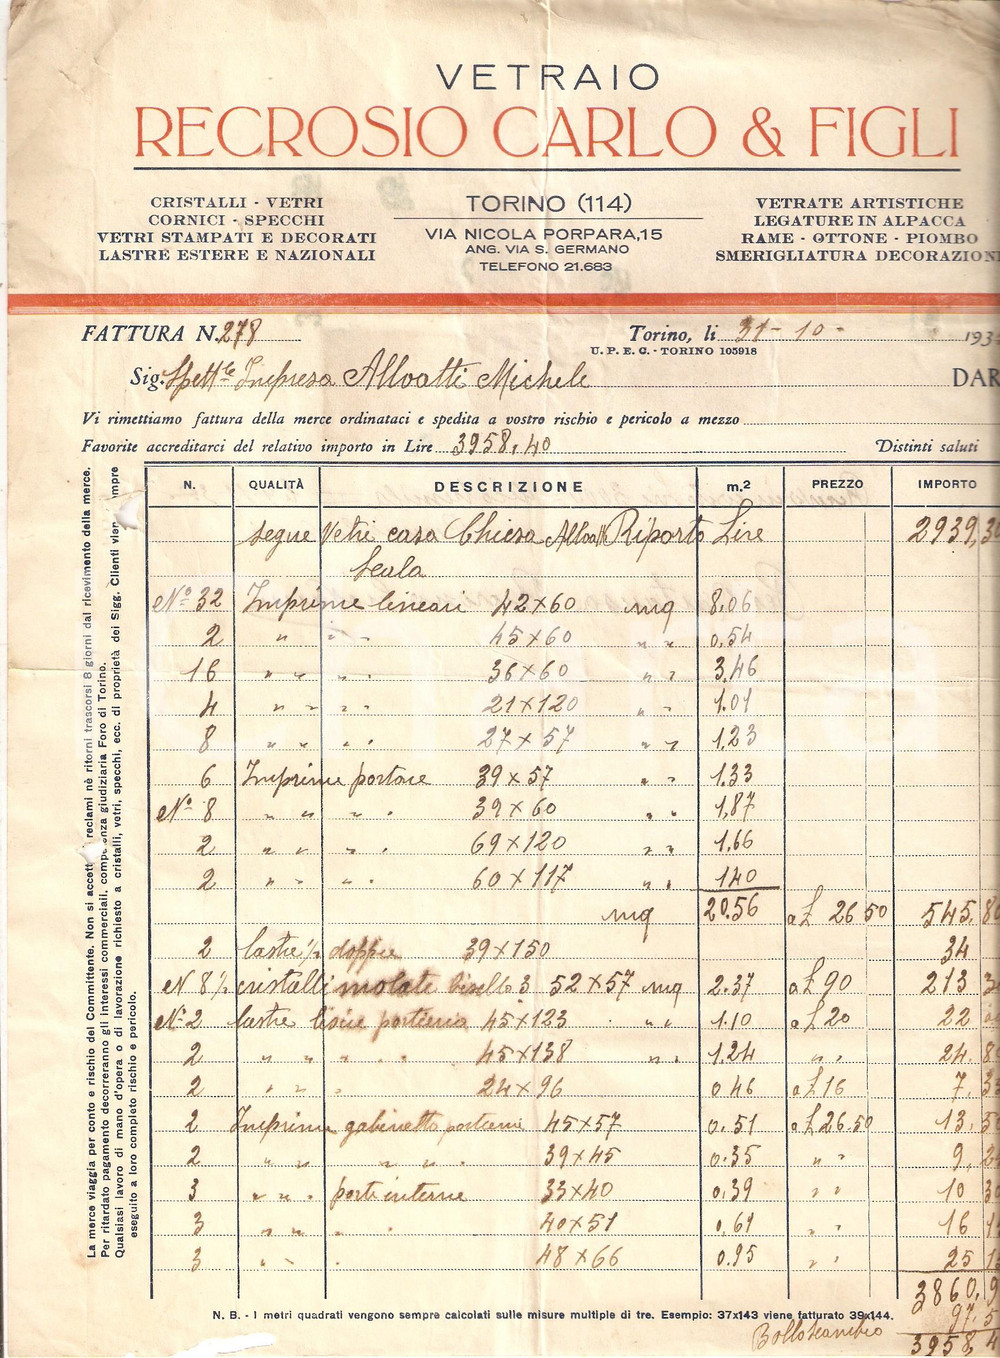 VETRAIO
RECROSIO CARLO & FIGLI
CRISTALLI - VETRI
CORNICI - SPECCHI
VETRI STAMPATI E DECORATI
LASTRE ESTERE E NAZIONALI
TORINO (114)
VIA NICOLA PORPARA,15
ANG. VIA S. GERMANO
TELEFONO 21.683
VETRATE ARTISTICHE
LEGATURE IN ALPACCA
RAME - OTTONE - PIOMBO
SMERIGLIATURA DECORAZION
FATTURA N. 278
Torino, li 31-10- 193
U. P. E. C. - TORINO 105918
Sig. Spett.le Impresa Alloatti Michele DAR
Vi rimettiamo fattura della merce ordinataci e spedita a vostro rischio e pericolo a mezzo
Favorite accreditarci del relativo importo in Lire 3958,40 Distinti saluti
N. QUALITÀ DESCRIZIONE m.² PREZZO IMPORTO
segue Vetri casa Chiesa Riporto Lire 2939,3
Scala
N° 32 Imprime lineari 42×60 mq 8,06
2 " " " " 45×60 " " 0,54
16 " " " " 36×60 " " 3,46
4 " " " " 21×120 " " 1.01
8 " " " " 27×57 " " 1,23
6 Imprime portone 39×57 " " 1.33
N° 8 " " " " 39×60 " " 1,87
2 " " " " 69×120 " " 1,66
2 " " " " 60×117 " " 140
mq 20.56 a £ 26 50 545,8
2 lastre ½ doppie 39×150 34
N 8 ½ cristalli molate bisello 3 52×57 mq 2.37 a £ 90 213 3
N° 2 lastre liscie portieria 45×123 " " 1.10 a £ 20 22
2 " " " " 45×138 " " 1.24 " " 24,8
2 " " " 24×96 0 46 a £ 16 7,3
2 Imprime gabinetto portieria 45×57 0,51 a £ 26.50 13,5
2 " " " " " 39×45 0.35 " " 9,2
3 " " " porte interne 33×40 0,39 " " 10 3
3 " " " 40×51 0,61 " " 16 1
3 " " " 48×66 0.95 " " 25 1
3860,9
N. B. - I metri quadrati vengono sempre calcolati sulle misure multiple di tre. Esempio: 37x143 viene fatturato 39x144.
Bollo scambio 97,5
3958,4
La merce viaggia per conto e rischio del Committente. Non si accett reclami nè ritorni trascorsi 8 giorni dal ricevimento della merce.
Per ritardato pagamento decorreranno gli interessi commerciali, comp enza giudiziaria Foro di Torino.
Qualsiasi lavoro di mano d'opera o di lavorazione richiesto a cristalli, vetri, specchi, ecc. di proprietà dei Sigg. Clienti vien mpre
eseguito a loro completo rischio e pericolo.